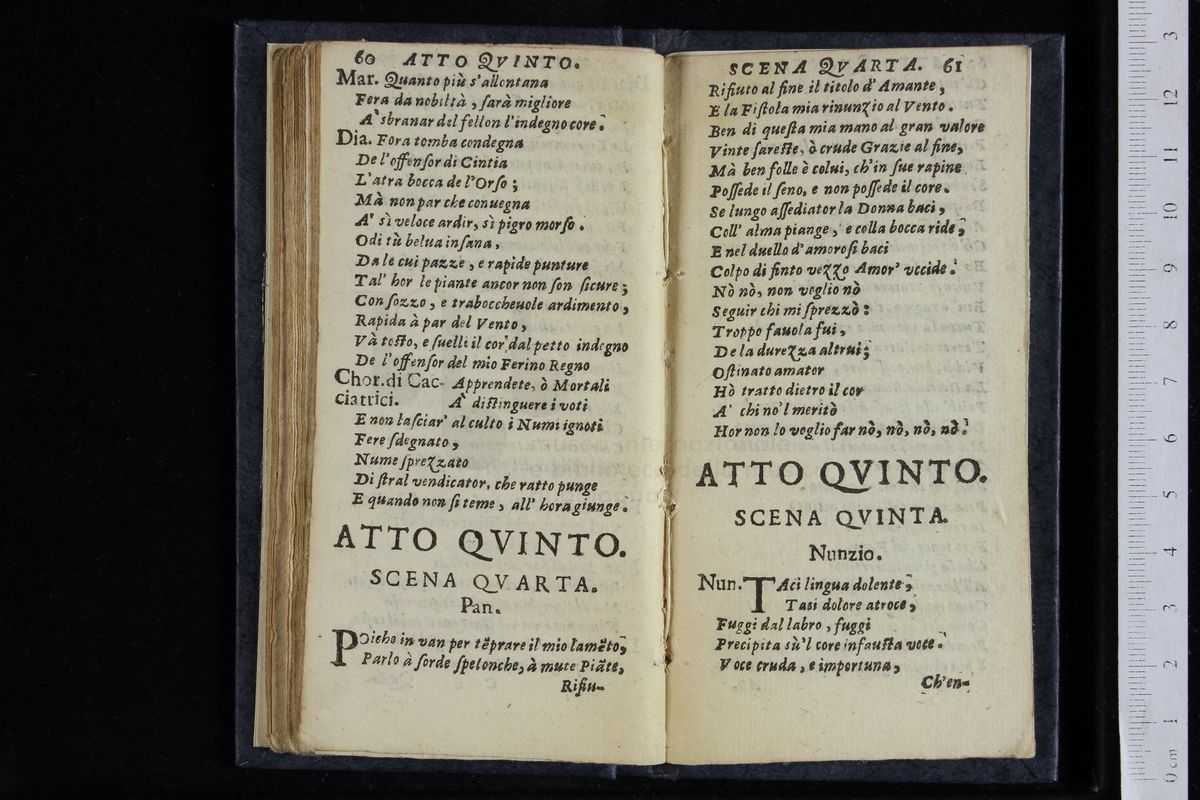 60 ATTO QVINTO.
Mar. Quanto più s'allontana
Fera da nobiltà, sarà migliore
A' sbranar del fellon l'indegno core.
Dia. Fora tomba condegna
De l'offensor di Cintia
L'atra bocca de l'Orso;
Mà non par che conuegna
A' sì veloce ardir, sì pigro morso.
Odi tù belua insana,
Da le cui pazze, e rapide punture
Tal' hor le piante ancor non son sicure;
Con sozzo, e traboccheuole ardimento,
Rapida à par del Vento,
Và tosto, e suelli il cor dal petto indegno
De l'offensor del mio Ferino Regno
Chor. di Cac- Apprendete, ò Mortali
ciatrici. A' distinguere i voti
E non lasciar' al culto i Numi ignoti
Fere sdegnato,
Nume sprezzato
Di stral vendicator, che ratto punge
E quando non si teme, all' hora giunge.
ATTO QVINTO.
SCENA QVARTA.
Pan.
POiche in van per tẽprare il mio lamẽto,
Parlo à sorde spelonche, à mute Piãte,
Rifiu-
SCENA QVARTA. 61
Rifiuto al fine il titolo d'Amante,
E la Fistola mia rinunzio al Vento.
Ben di questa mia mano al gran valore
Vinte sareste, ò crude Grazie al fine,
Mà ben folle è colui, ch'in sue rapine
Possede il seno, e non possede il core.
Se lungo assediator la Donna baci,
Coll' alma piange, e colla bocca ride,
E nel duello d'amorosi baci
Colpo di finto vezzo Amor' vccide.
Nò nò, non voglio nò
Seguir chi mi sprezzò:
Troppo fauola fui,
De la durezza altrui;
Ostinato amator
Hò tratto dietro il cor
A' chi no'l meritò
Hor non lo voglio far nò, nò, nò, nò.
ATTO QVINTO.
SCENA QVINTA.
Nunzio.
Nun. TAci lingua dolente,
Tasi dolore atroce,
Fuggi dal labro, fuggi
Precipita sù'l core infausta voce.
Voce cruda, e importuna,
Ch'en-
0 cm 1 2 3 4 5 6 7 8 9 10 11 12 3